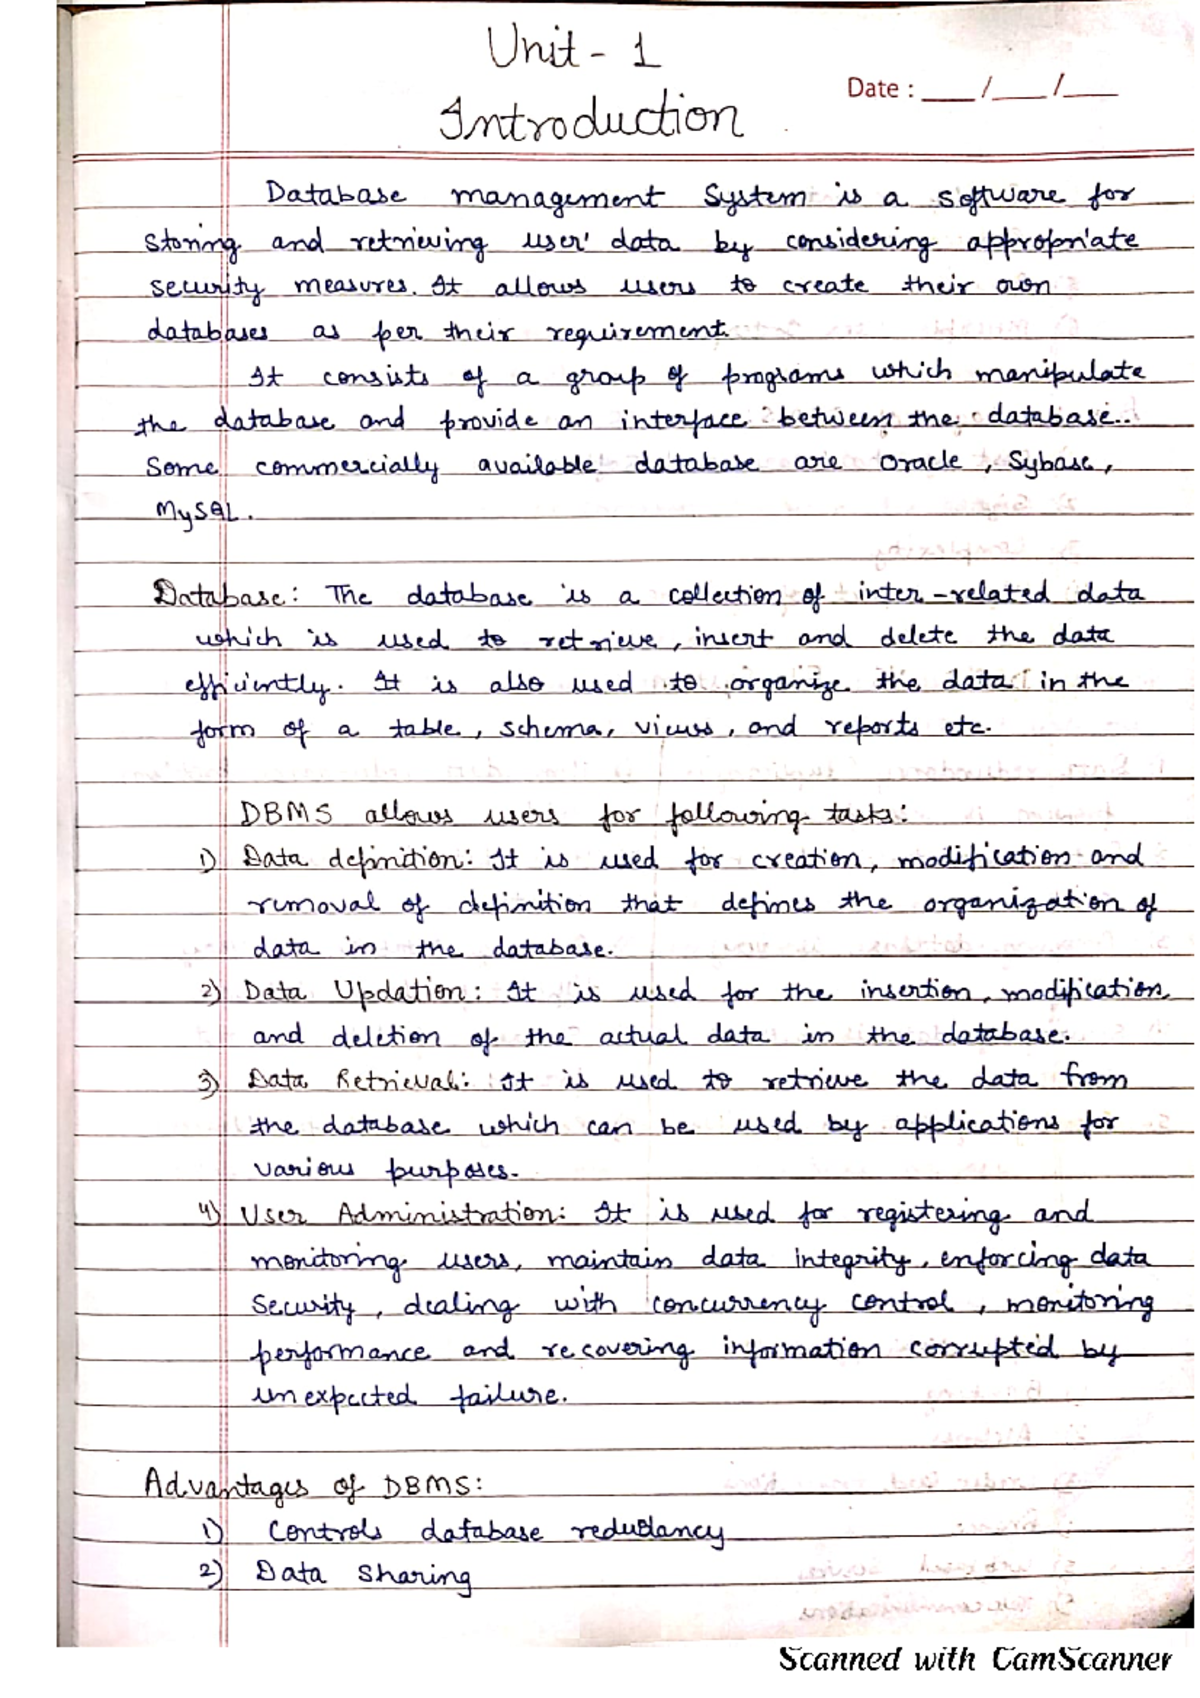 Unit - 1
Date : ___/___/___
Introduction
Database management System is a software for
storing and retrieving user' data by considering appropriate
security measures. It allows users to create their own
databases as per their requirement.
It consists of a group of programs which manipulate
the database and provide an interface between the database..
Some commercially available database are Oracle, Sybase,
MySQL.
Database: The database is a collection of inter-related data
which is used to retrieve, insert and delete the data
efficiently. It is also used to organize the data in the
form of a table, schema, views, and reports etc.
DBMS allows users for following tasks:
1) Data definition: It is used for creation, modification and
removal of definition that defines the organization of
data in the database.
2) Data Updation: It is used for the insertion, modification,
and deletion of the actual data in the database.
3) Data Retrieval: It is used to retrieve the data from
the database which can be used by applications for
various purposes.
4) User Administration: It is used for registering and
monitoring users, maintain data integrity, enforcing data
Security, dealing with concurrency control, monitoring
performance and recovering information corrupted by
unexpected failure.
Advantages of DBMS:
1) Controls database redudancy
2) Data sharing
Scanned with CamScanner